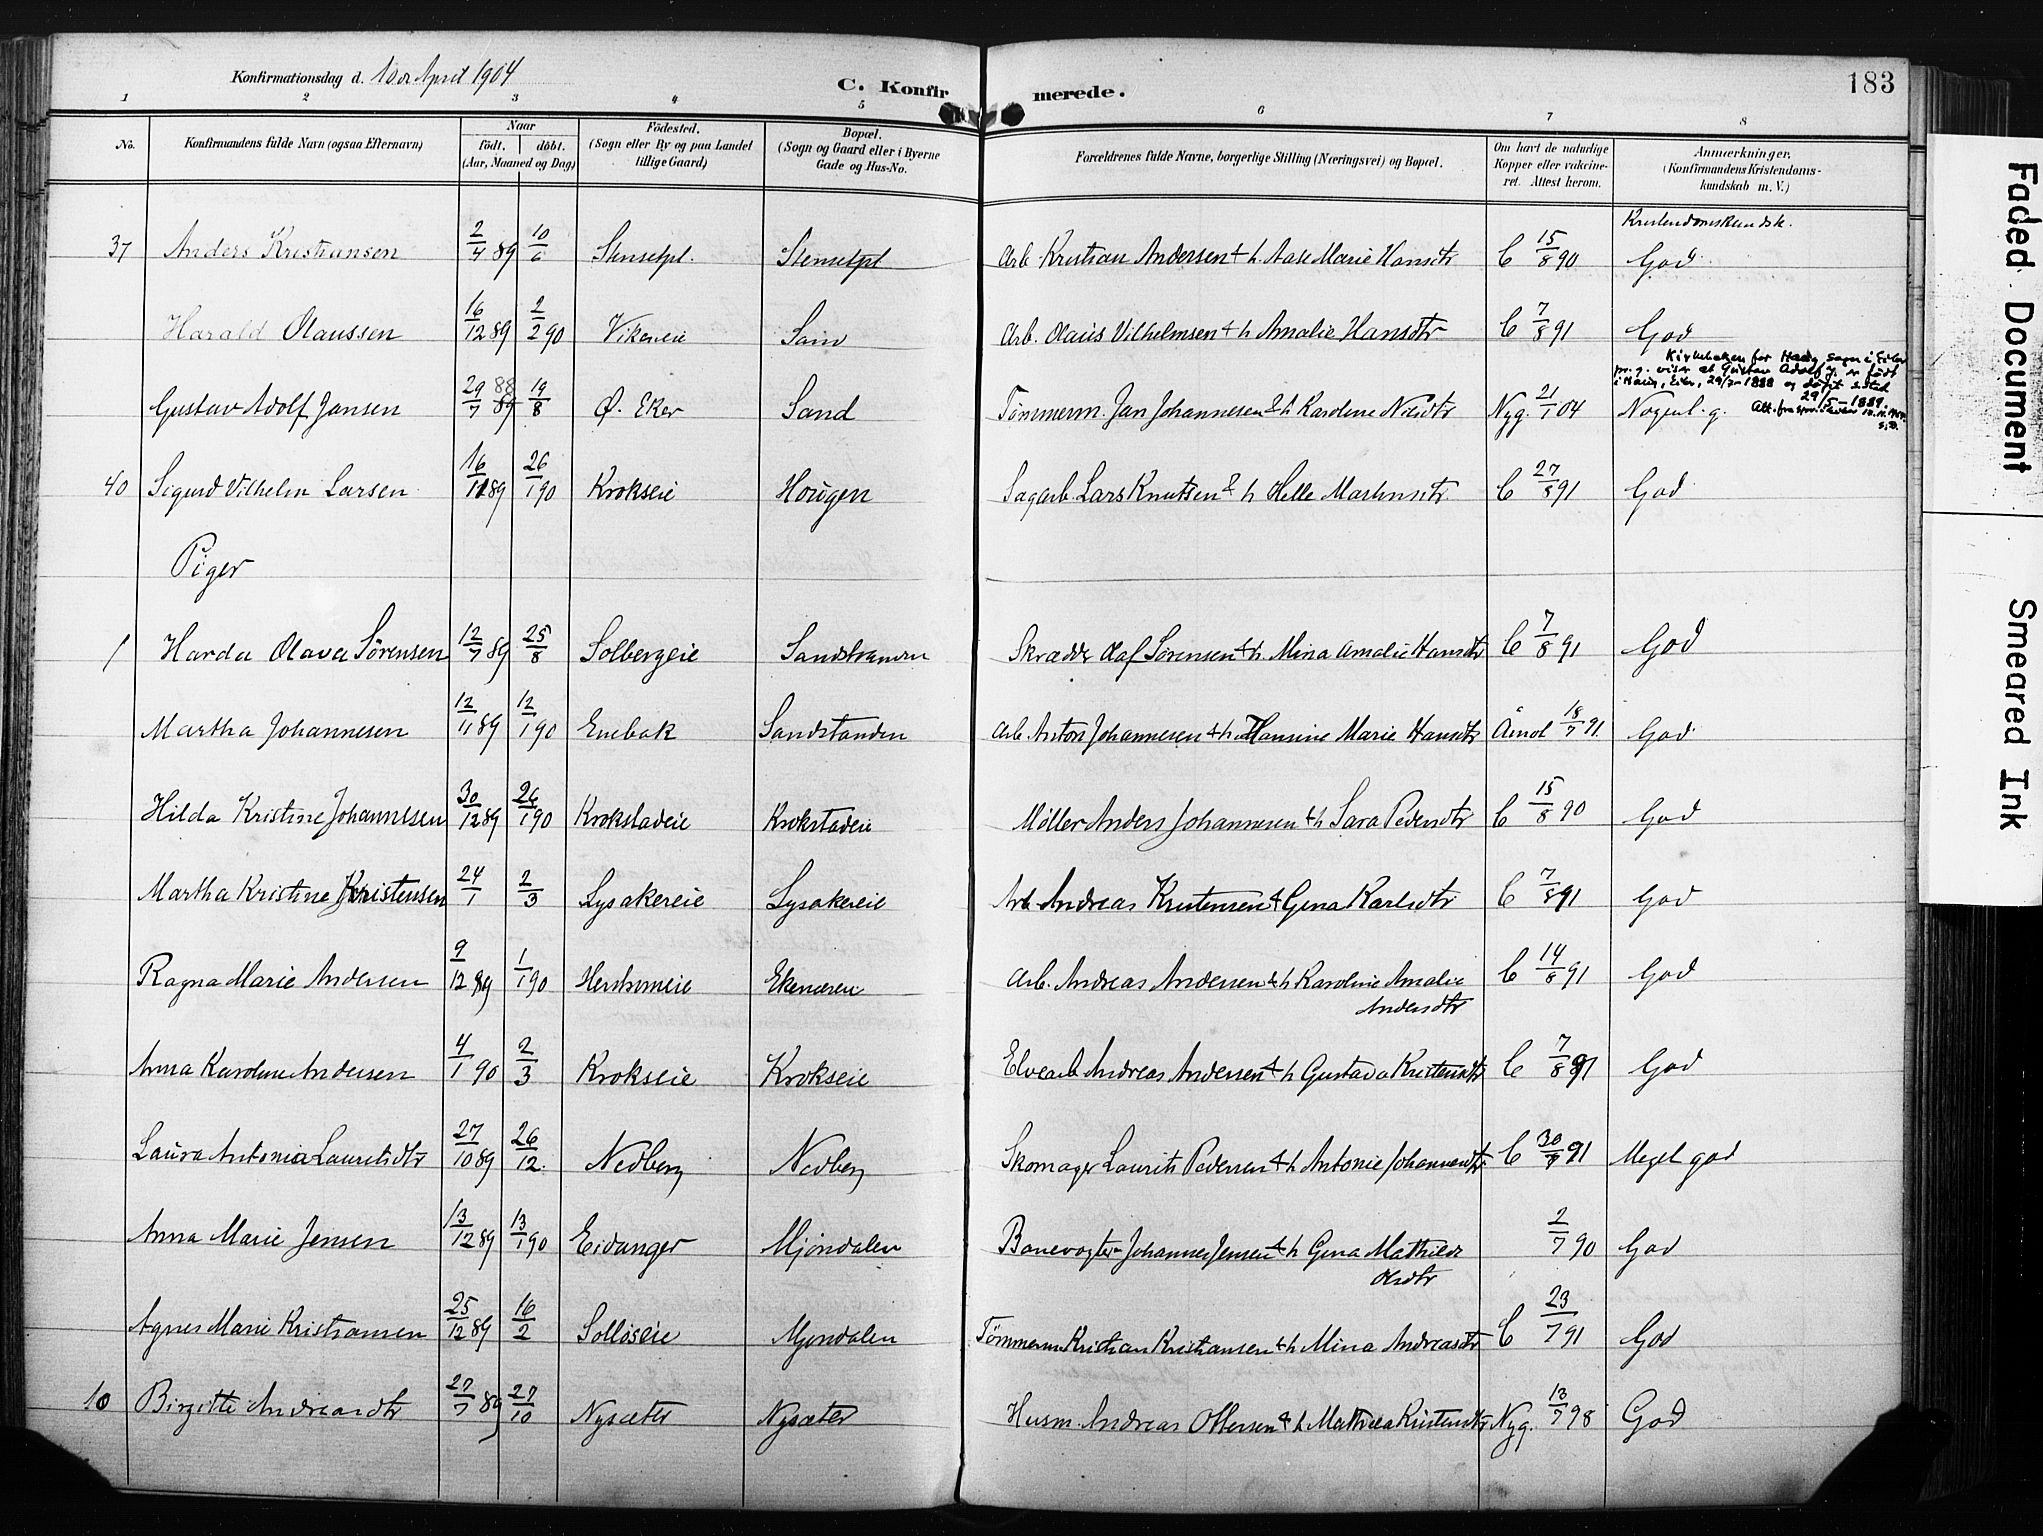 Konfirmationsdag d. 10de April 1904
C. Konfir merede. 183
1 2 3 4 5 6 7 8
No. Konfirmandens fulde Navn (ogsaa Efternavn) Naar Födested. Bopæl. Forældrenes fulde Navne, borgerlige Stilling (Næringsvei) og Bopæl. Om havt de naturlige Anmærkninger.
födt. döbt. (Sogn eller By og paa Landet (Sogn og Gaard eller i Byerne Kopper eller vakcine- (Konfirmandens Kristendoms-
(Aar, Maaned og Dag) tillige Gaard) Gade og Hus-No. ret. Attest herom. kundskab m. V.)
Kristendomskundsk.
37 Anders Kristiansen 2/4 89 10/6 Stensetpl. Stensetpl Arb Kristian Andersen & h. Aase Marie Hansdtr C 15/8 90 God
Harald Olaussen 16/12 89 2/2 90 Vikeneie Sand Arb. Olaus Vilhelmsen & h Amalie Hansdtr C 7/8 91 God
Kirkeboken for Haug sogn i Eiker
pr.g. viser at Gustav Adolf g. er født
i Haug, Eiker, 29/7-1888 og døpt s.sted
29/5-1889.
Gustav Adolf Jansen 29/7 88 89 19/8 Ø. Eker Sand Tømmerm. Jan Johannesen & h Karoline Nilsdtr Nyg. 21/1 04 Nogenl. g.
40 Sigurd Vilhelm Larsen 16/11 89 26/1 90 Krokseie Hougen Sagarb. Lars Knutsen & h Helle Martinsdtr C 27/8 91 God
Piger
1 Harda Olava Sørensen 12/7 89 25/8 Solbergeie Sandstranden Skrædder Olaf Sørensen & h. Mina Amalie Hansdtr C 7/8 91 God
Martha Johannesen 12/11 89 12/1 90 Enebak Sandstanden Arb. Anton Johannesen & h Hansine Marie Hansdtr Åmot 18/7 91. God
Hilda Kristine Johannesen 30/12 89 26/1 90 Krokstadeie Krokstadeie Møller Anders Johannesen & h Sara Pedersdtr C 15/8 90 God
Martha Kristine Kristensen 24/1 2/3 Lysakereie Lysakereie Arb Andreas Kristensen & Gina Karlsdtr C 7/8 91 God
Ragna Marie Andersen 9/12 89 1/1 90 Herstromeie Ekenæsen Arb. Andreas Andersen & h Karoline Amalie C 14/8 91 God
Andersdtr
Anna Karoline Andersen 4/1 90 2/3 Krokseie Krokseie Elvearb Andreas Andersen & h Gustava Kristensdtr C 7/8 91 God
Laura Antonia Lauritsdtr 27/10 89 26/12. Nedberg Nedberg Skomager Laurits Pedersen & h Antonie Johannesdtr C 30/7 91 Meget god
Anna Marie Jensen 13/12 89 13/1 90 Eidanger Mjöndalen Banevogter Johannes Jensen & h Gina Mathilde 2/7 90 God
Olsdtr
Agnes Marie Kristiansen 25/12 89 16/2 Solløseie Mjöndalen Tømmerm Kristian Kristiansen & h Mina Andreasdtr C 23/7 91 God
10 Birgitte Andreasdtr 27/7 89 27/10 Nysæter Nysæter Husm. Andreas Ottersen & h Mathea Kristensdtr Nyg. 13/7 98 God
Faded Document
Smeared Ink